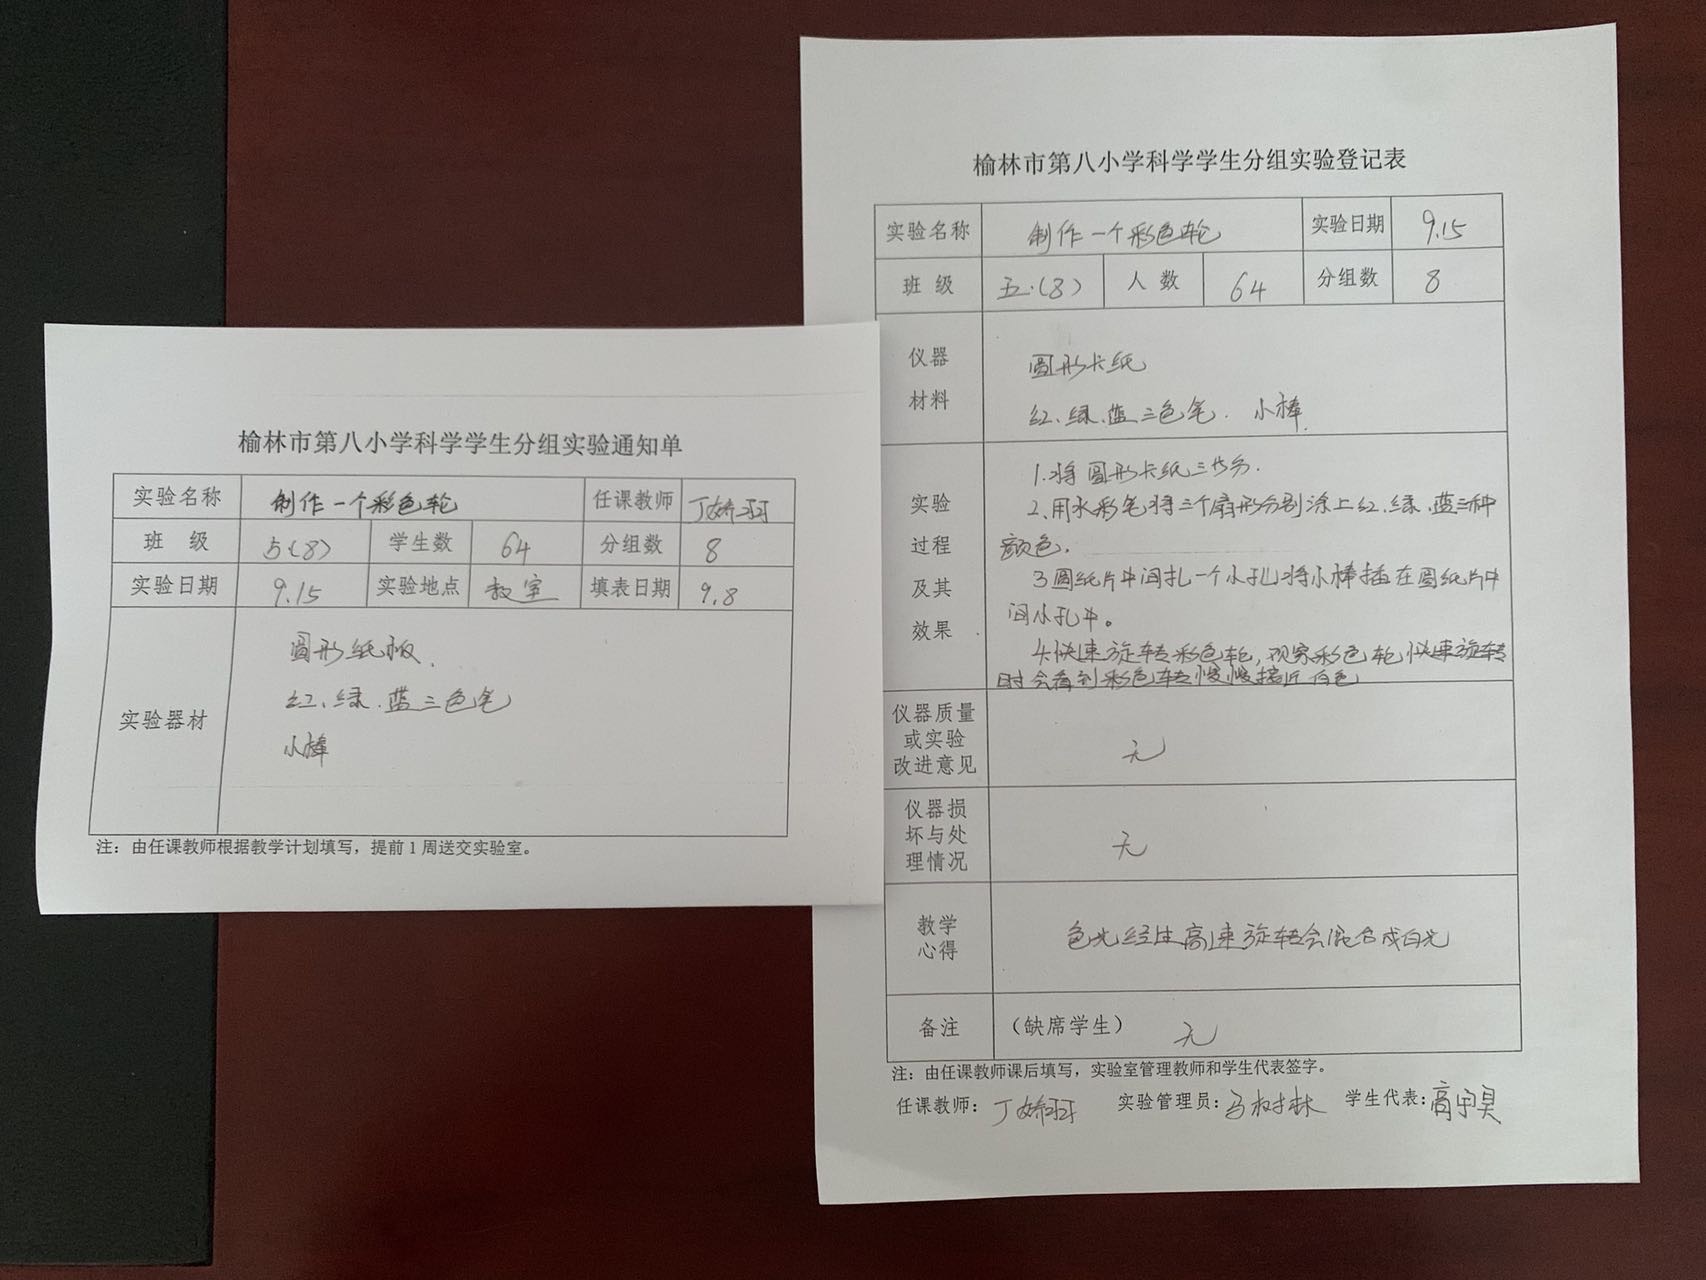 榆林市第八小学科学学生分组实验通知单
实验名称 制作一个彩色轮 任课教师 丁娇珂
班 级 5(8) 学生数 64 分组数 8
实验日期 9.15 实验地点 教室 填表日期 9.8
实验器材
圆形纸板、
红、绿、蓝三色笔
小棒
注：由任课教师根据教学计划填写，提前1周送交实验室。
榆林市第八小学科学学生分组实验登记表
实验名称 制作一个彩色轮 实验日期 9.15
班 级 五.(8) 人 数 64 分组数 8
仪器
材料
圆形卡纸
红、绿、蓝三色笔. 小棒.
实验
过程
及其
效果
1.将圆形卡纸三等分.
2.用水彩笔将三个扇形分别涂上红、绿、蓝三种
颜色.
3圆纸片中间扎一个小孔,将小棒插在圆纸片中
间小孔中。
4.快速旋转彩色轮,观察彩色轮快速旋转
时会看到彩色轮慢慢接近白色
仪器质量
或实验
改进意见
无
仪器损
坏与处
理情况
无
教学
心得
色光经过高速旋转会混合成白光
备注 （缺席学生） 无
注：由任课教师课后填写，实验室管理教师和学生代表签字。
任课教师：丁娇珂 实验管理员：马树林 学生代表：高宇昊